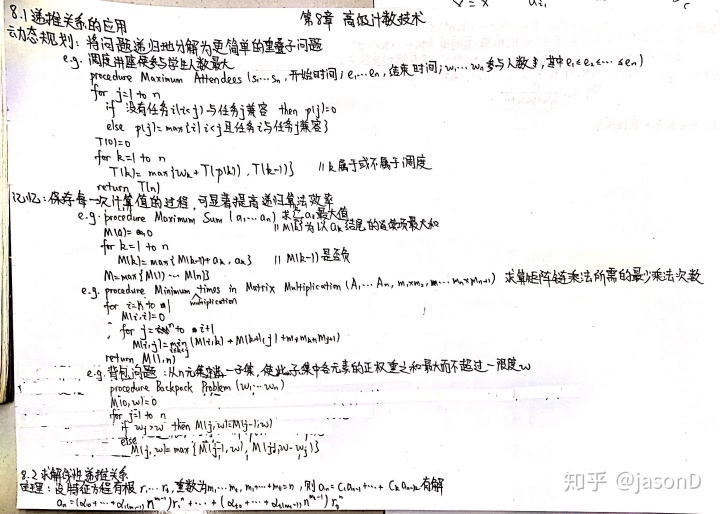 第8章 高级计数技术
8.1 递推关系的应用
动态规划：将问题递归地分解为更简单的重叠子问题
e.g. 调度讲座使参与学生人数最大
procedure Maximum Attendees (s₁…sₙ,开始时间; e₁…eₙ,结束时间; w₁…wₙ参与人数, 其中e₁≤e₂≤…≤eₙ)
for j=1 to n
if 没有任务i(i<j)与任务j兼容 then p(j)=0
else p(j)=max{i|i<j且任务i与任务j兼容}
T(0)=0
for k=1 to n
T(k)=max{wₖ+T(p(k)), T(k-1)} //k属于或不属于调度
return T(n)
记忆：保存每一次计算值的过程，可显著提高递归算法效率
e.g. procedure Maximum Sum (a₁…aₙ) 最大值
M(0)=0 //M(k)为以aₖ结尾的连续项最大和
for k=1 to n
M(k)=max{M(k-1)+aₖ, aₖ} //M(k-1)是否负
M=max{M(1)…M(n)}
e.g. procedure Minimum times in Matrix Multiplication (A₁…Aₙ, m₁×m₂, … mₙ×mₙ₊₁) 求算矩阵链乘法所需的最少乘法次数
multiplication
for i=n to 1
M(i,i)=0
for j= to i+1
M(i,j)=min
return M(1,n)
e.g. 背包问题：从n元集中选一子集，使此子集中各元素的正权重之和最大而不超过一限度w
procedure Backpack Problem (w₁…wₙ)
M(0,w)=0
for j=1 to n
if wⱼ>w then M(j,w)=M(j-1,w)
else
M(j,w)=max{M(j-1,w), M(j-1,w-wⱼ)}
8.2 求解线性递推关系
定理：设特征方程有根r₁…rₜ,重数为m₁…mₜ, m₁+…+mₜ=n, 则aₙ=C₁aₙ₋₁+…+Cₖaₙ₋ₖ有解
知乎 @jasonD